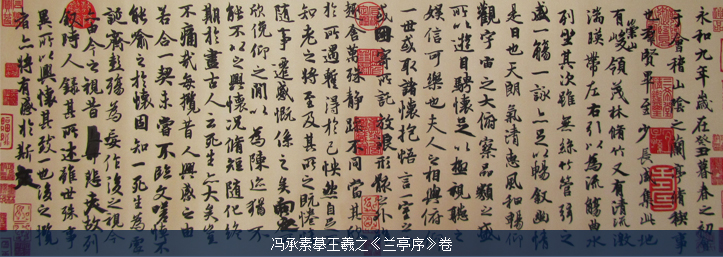 永和九年歲在癸丑暮春之初會
于會稽山陰之蘭亭脩稧事
也群賢畢至少長咸集此地
有崇山峻領茂林脩竹又有清流激
湍暎帶左右引以為流觴曲水
列坐其次雖無絲竹管弦之
盛一觴一詠亦足以暢敘幽情
是日也天朗氣清惠風和暢仰
觀宇宙之大俯察品類之盛
所以遊目騁懷足以極視聽之
娛信可樂也夫人之相與俯仰
一世或取諸懷抱悟言一室之
或因寄所託放浪形骸之外
趣舍萬殊靜躁不同當其欣
於所遇暫得於己怏然自足
知老之將至及其所之既惓
隨事遷感慨係之矣向之
欣俛仰之間以為陳迹猶不
能不以之興懷況脩短隨化終
期於盡古人云死生亦大矣豈
不痛哉每攬昔人興感之由
若合一契未嘗不臨文嗟悼不
能喻之於懷固知一死生為虛
誕齊彭殤為妄作後之視今
亦由今之視昔悲夫故列
敘時人錄其所述雖世殊事
異所以興懷其致一也後之攬
者亦將有感於斯文
冯承素摹王羲之《兰亭序》卷